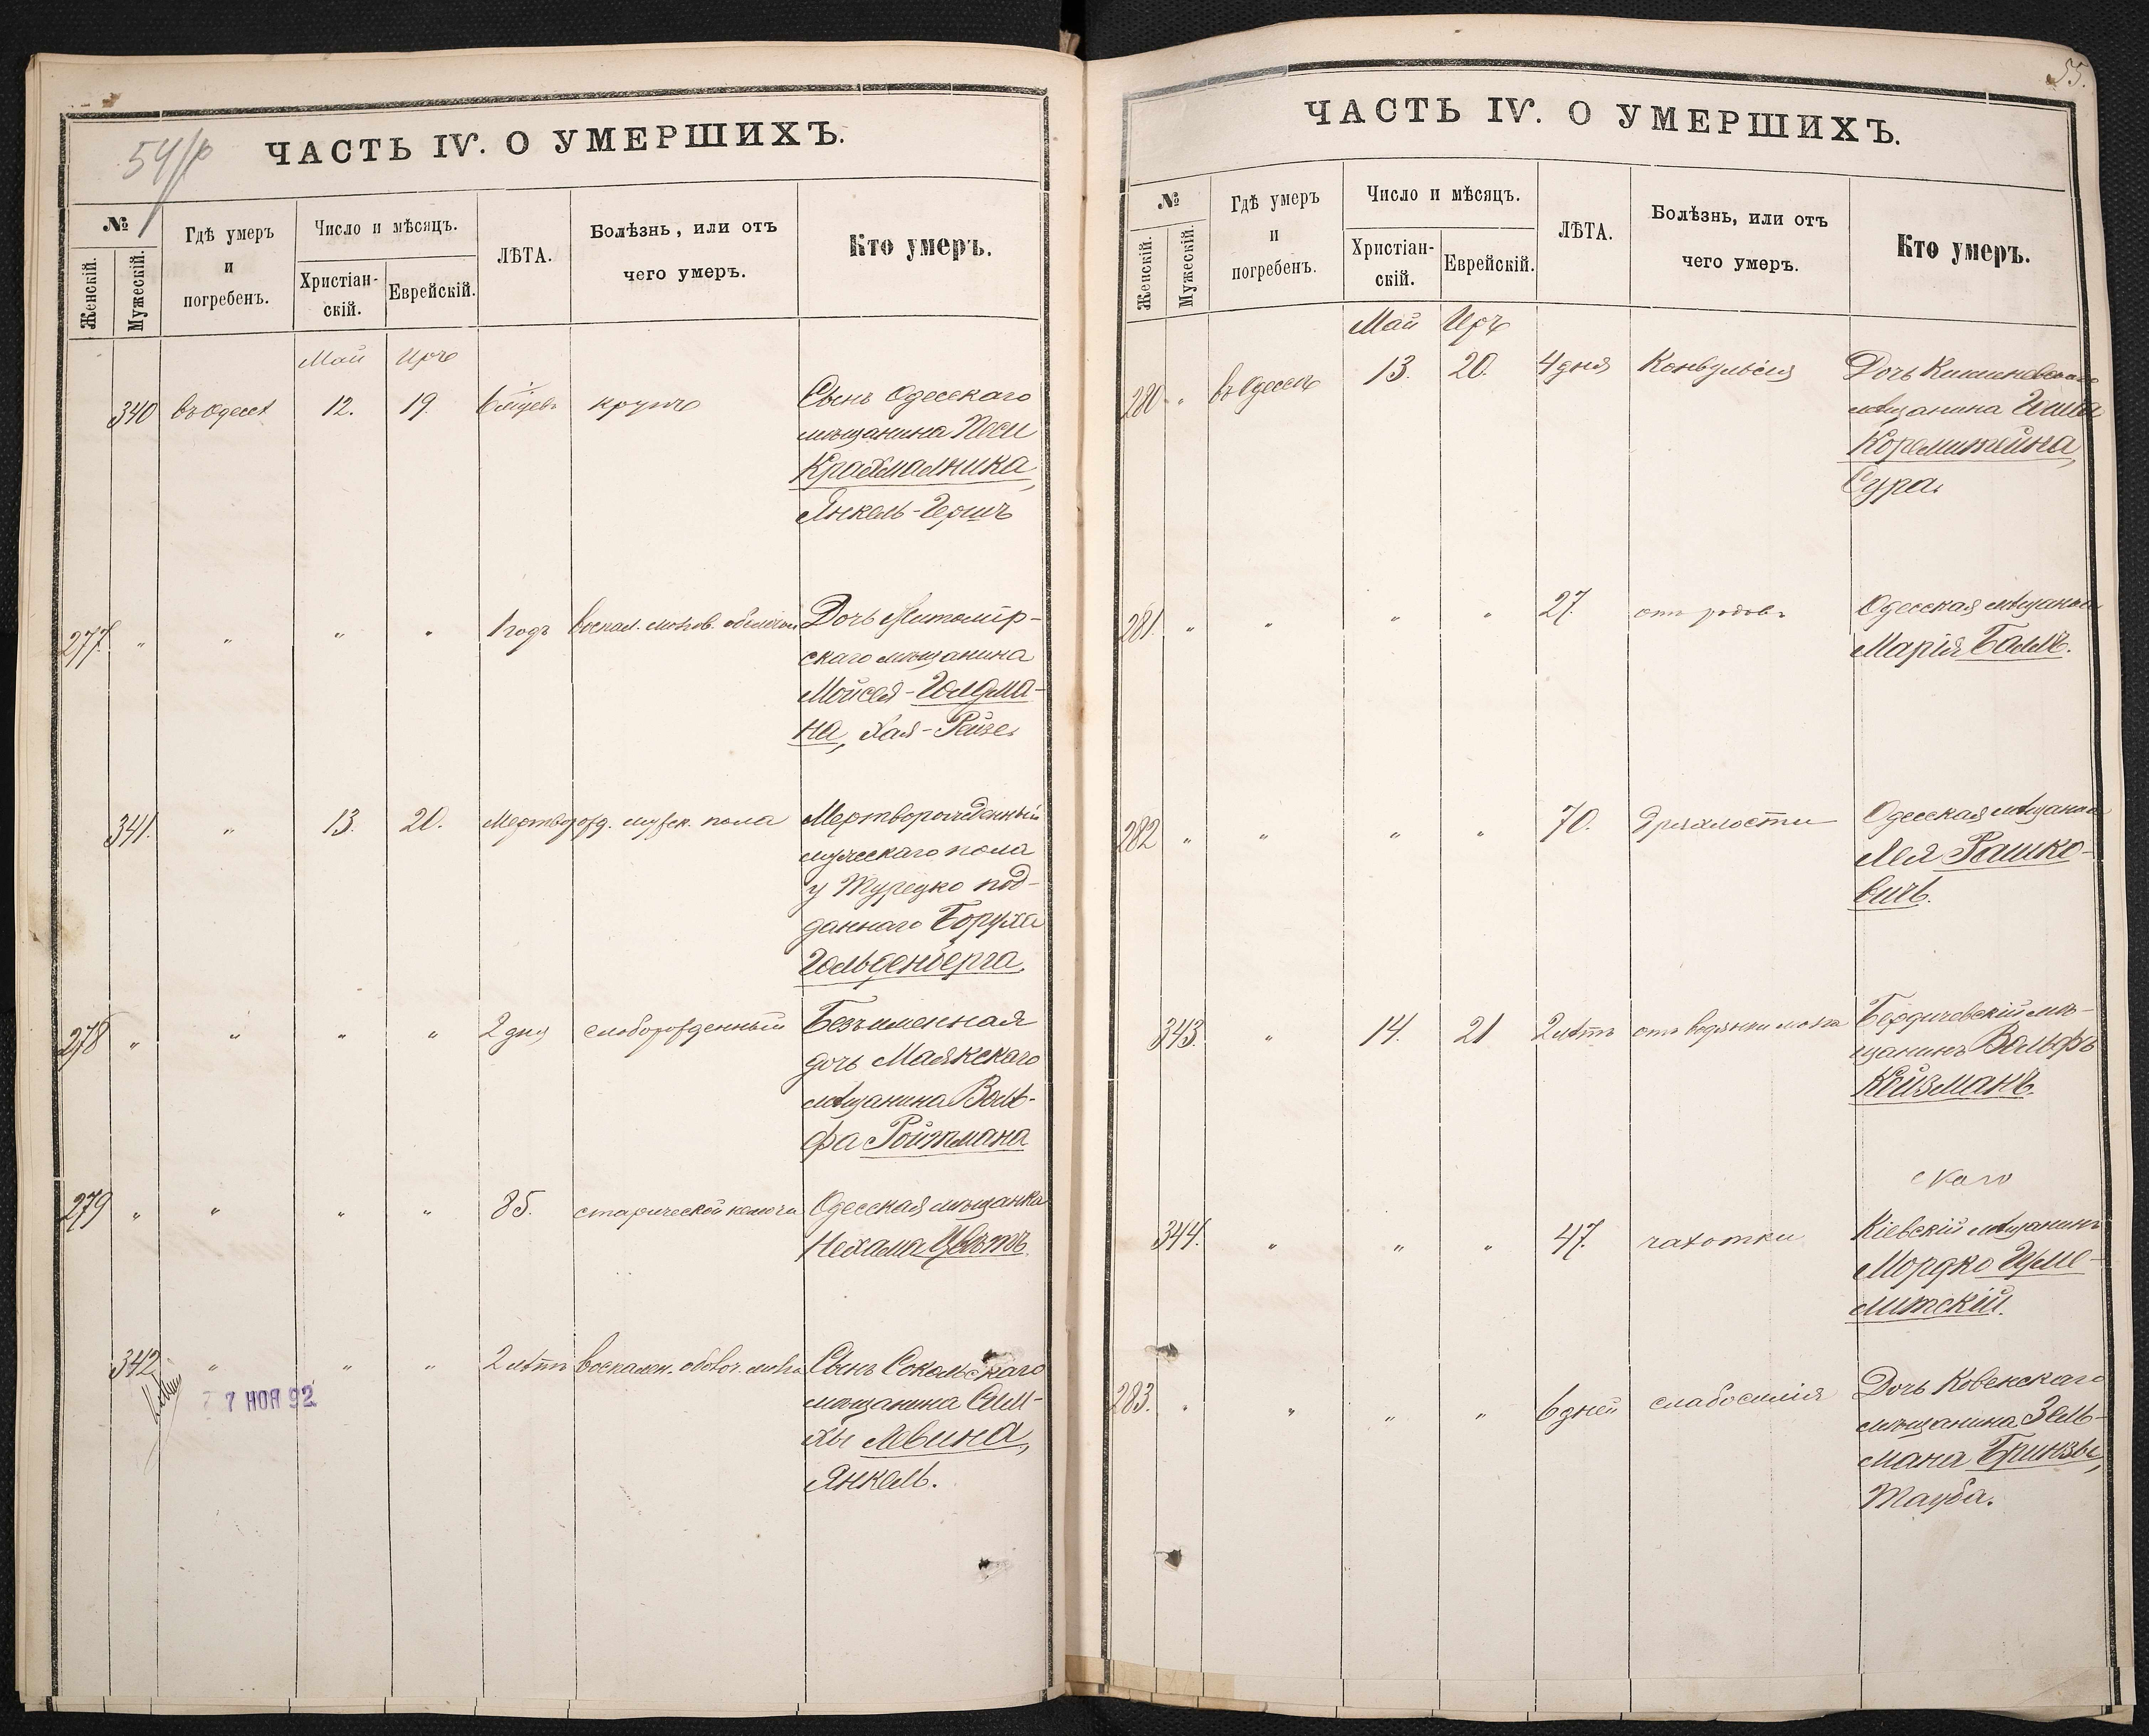 54/р
ЧАСТЬ IV. О УМЕРШИХЪ.
№
Женскій.
Мужескій.
Гдѣ умеръ
и
погребенъ.
Число и мѣсяцъ.
Христіан-
скій.
Еврейскій.
ЛѢТА.
Болѣзнь, или отъ
чего умеръ.
Кто умеръ.
Май Иръ
340 въ Одессѣ 12. 19. 6 мѣсяцевъ крупъ Сынъ Одесскаго
мѣщанина Песи
Крахмальника,
Янкель-Гершъ
277. " " " " 1 годъ воспал. мозгов. оболочки Дочь Житомір-
скаго мѣщанина
Мойсея-Голдма-
на, Хая-Рейзе.
341. " 13. 20. Мертворожд. мужск. пола Мертворожденный
мужескаго пола
у Турецко под-
даннаго Боруха
Гольденберга.
278 " " " " 2 дня слаборожденный Безъименная
дочь Маякскаго
мѣщанина Воль-
фа Ройтмана
279 " " " " 85. старческой немочи Одесская мѣщанка
Нехама Цвѣтъ.
342 " " " 2 лѣтъ воспален. оболоч. мозга Сынъ Сокольскаго
мѣщанина Сим-
хы Левина,
Янкель.
7 НОЯ 92
55.
ЧАСТЬ IV. О УМЕРШИХЪ.
№
Женскій.
Мужескій.
Гдѣ умеръ
и
погребенъ.
Число и мѣсяцъ.
Христіан-
скій.
Еврейскій.
ЛѢТА.
Болѣзнь, или отъ
чего умеръ.
Кто умеръ.
Май Иръ
280 " въ Одессѣ 13. 20. 4 дня Конвульсія Дочь Кишиневскаго
мѣщанина
Сура.
281. " " " " 27. отъ родовъ Одесская мѣщанка
Марія Балъ.
282 " " " " 70. дряхлости Одесская мѣщанка
Лея Рашко-
вичъ.
343. " 14. 21 2 лѣтъ отъ водянки мозга Бердичевскій мѣ-
щанинъ Вольфъ
Койзманъ.
скаго
344. " " " 47. чахотки Кіевскій мѣщанинъ
Мордко
283. " " " " 6 дней слабосилія Дочь Ковенскаго
мѣщанина Зель-
мана Бринзы,
Тауба.